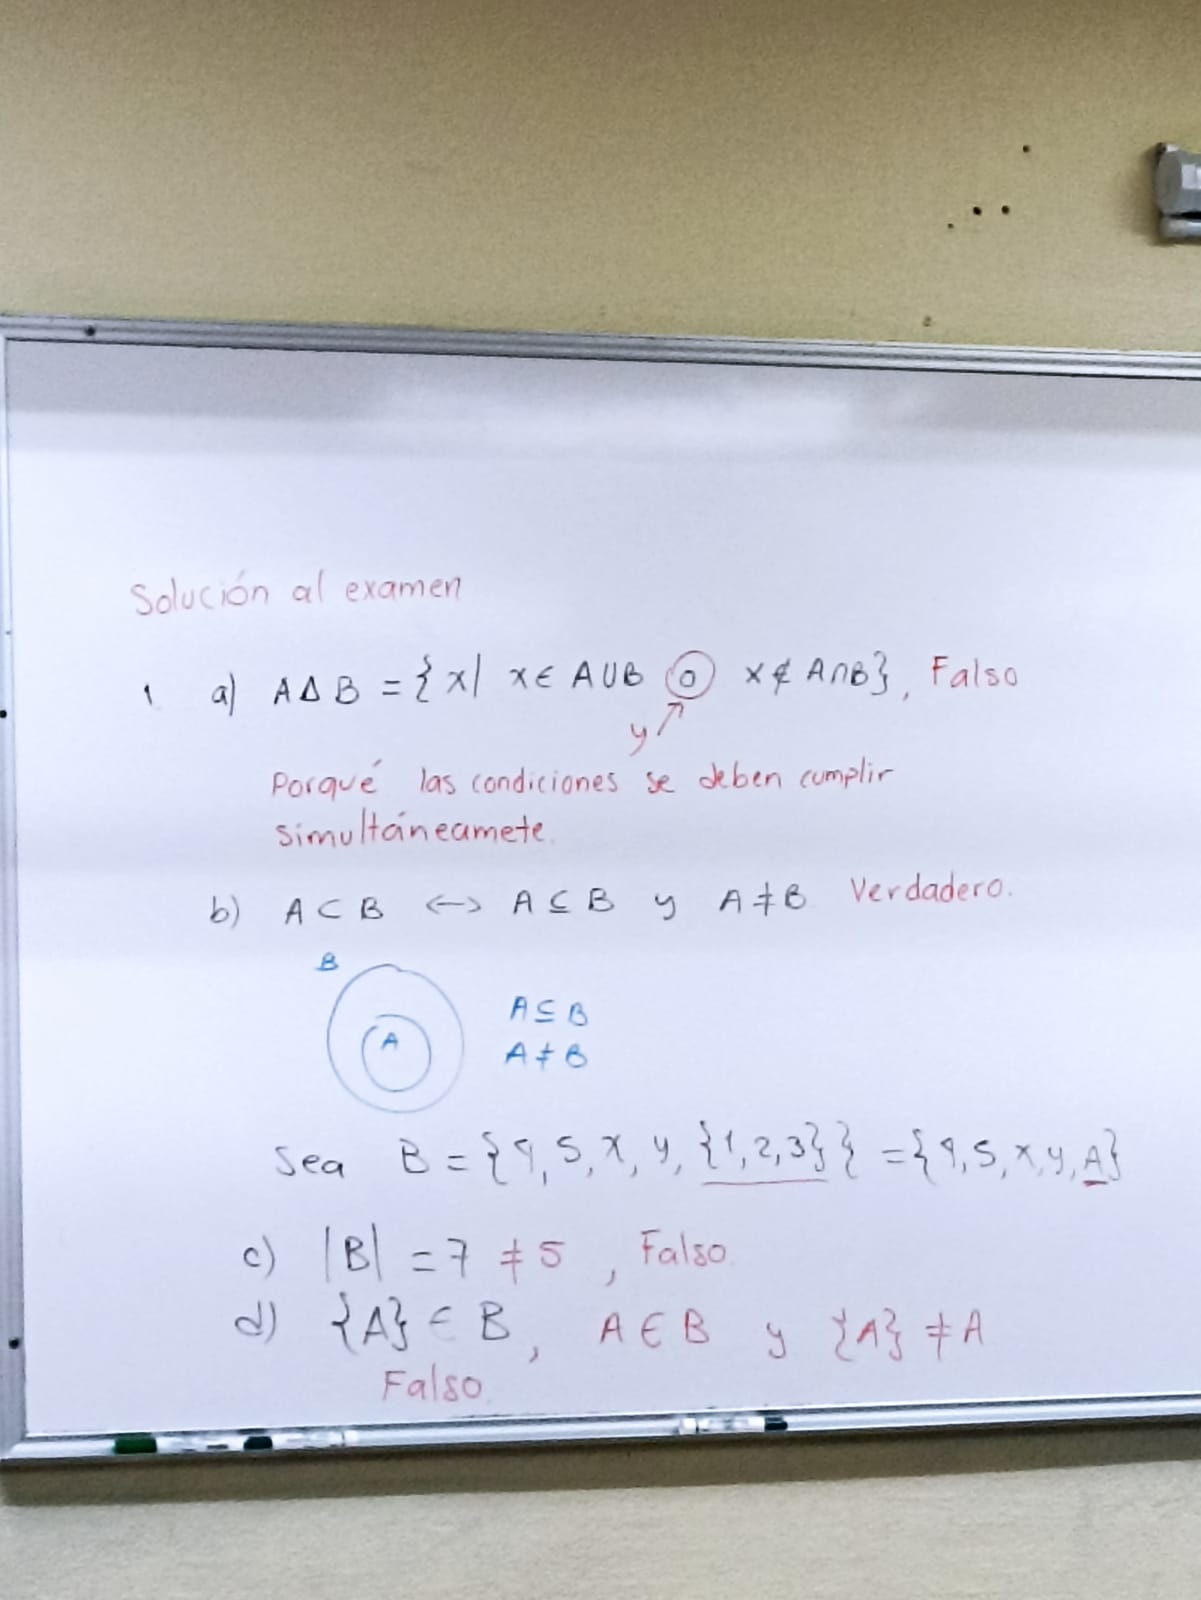 Solución al examen
1 a) A∆B = {x| x ∈ A∪B o x ∉ A∩B}, Falso
y
Porqué las condiciones se deben cumplir
simultáneamete.
b) A ⊂ B ↔ A ⊆ B y A ≠ B Verdadero.
B
A
A ⊆ B
A ≠ B
Sea B = {9, 5, x, y, {1,2,3}} = {9, 5, x, y, A}
c) |B| = 7 ≠ 5, Falso.
d) {A} ∈ B, A ∈ B y {A} ≠ A
Falso.